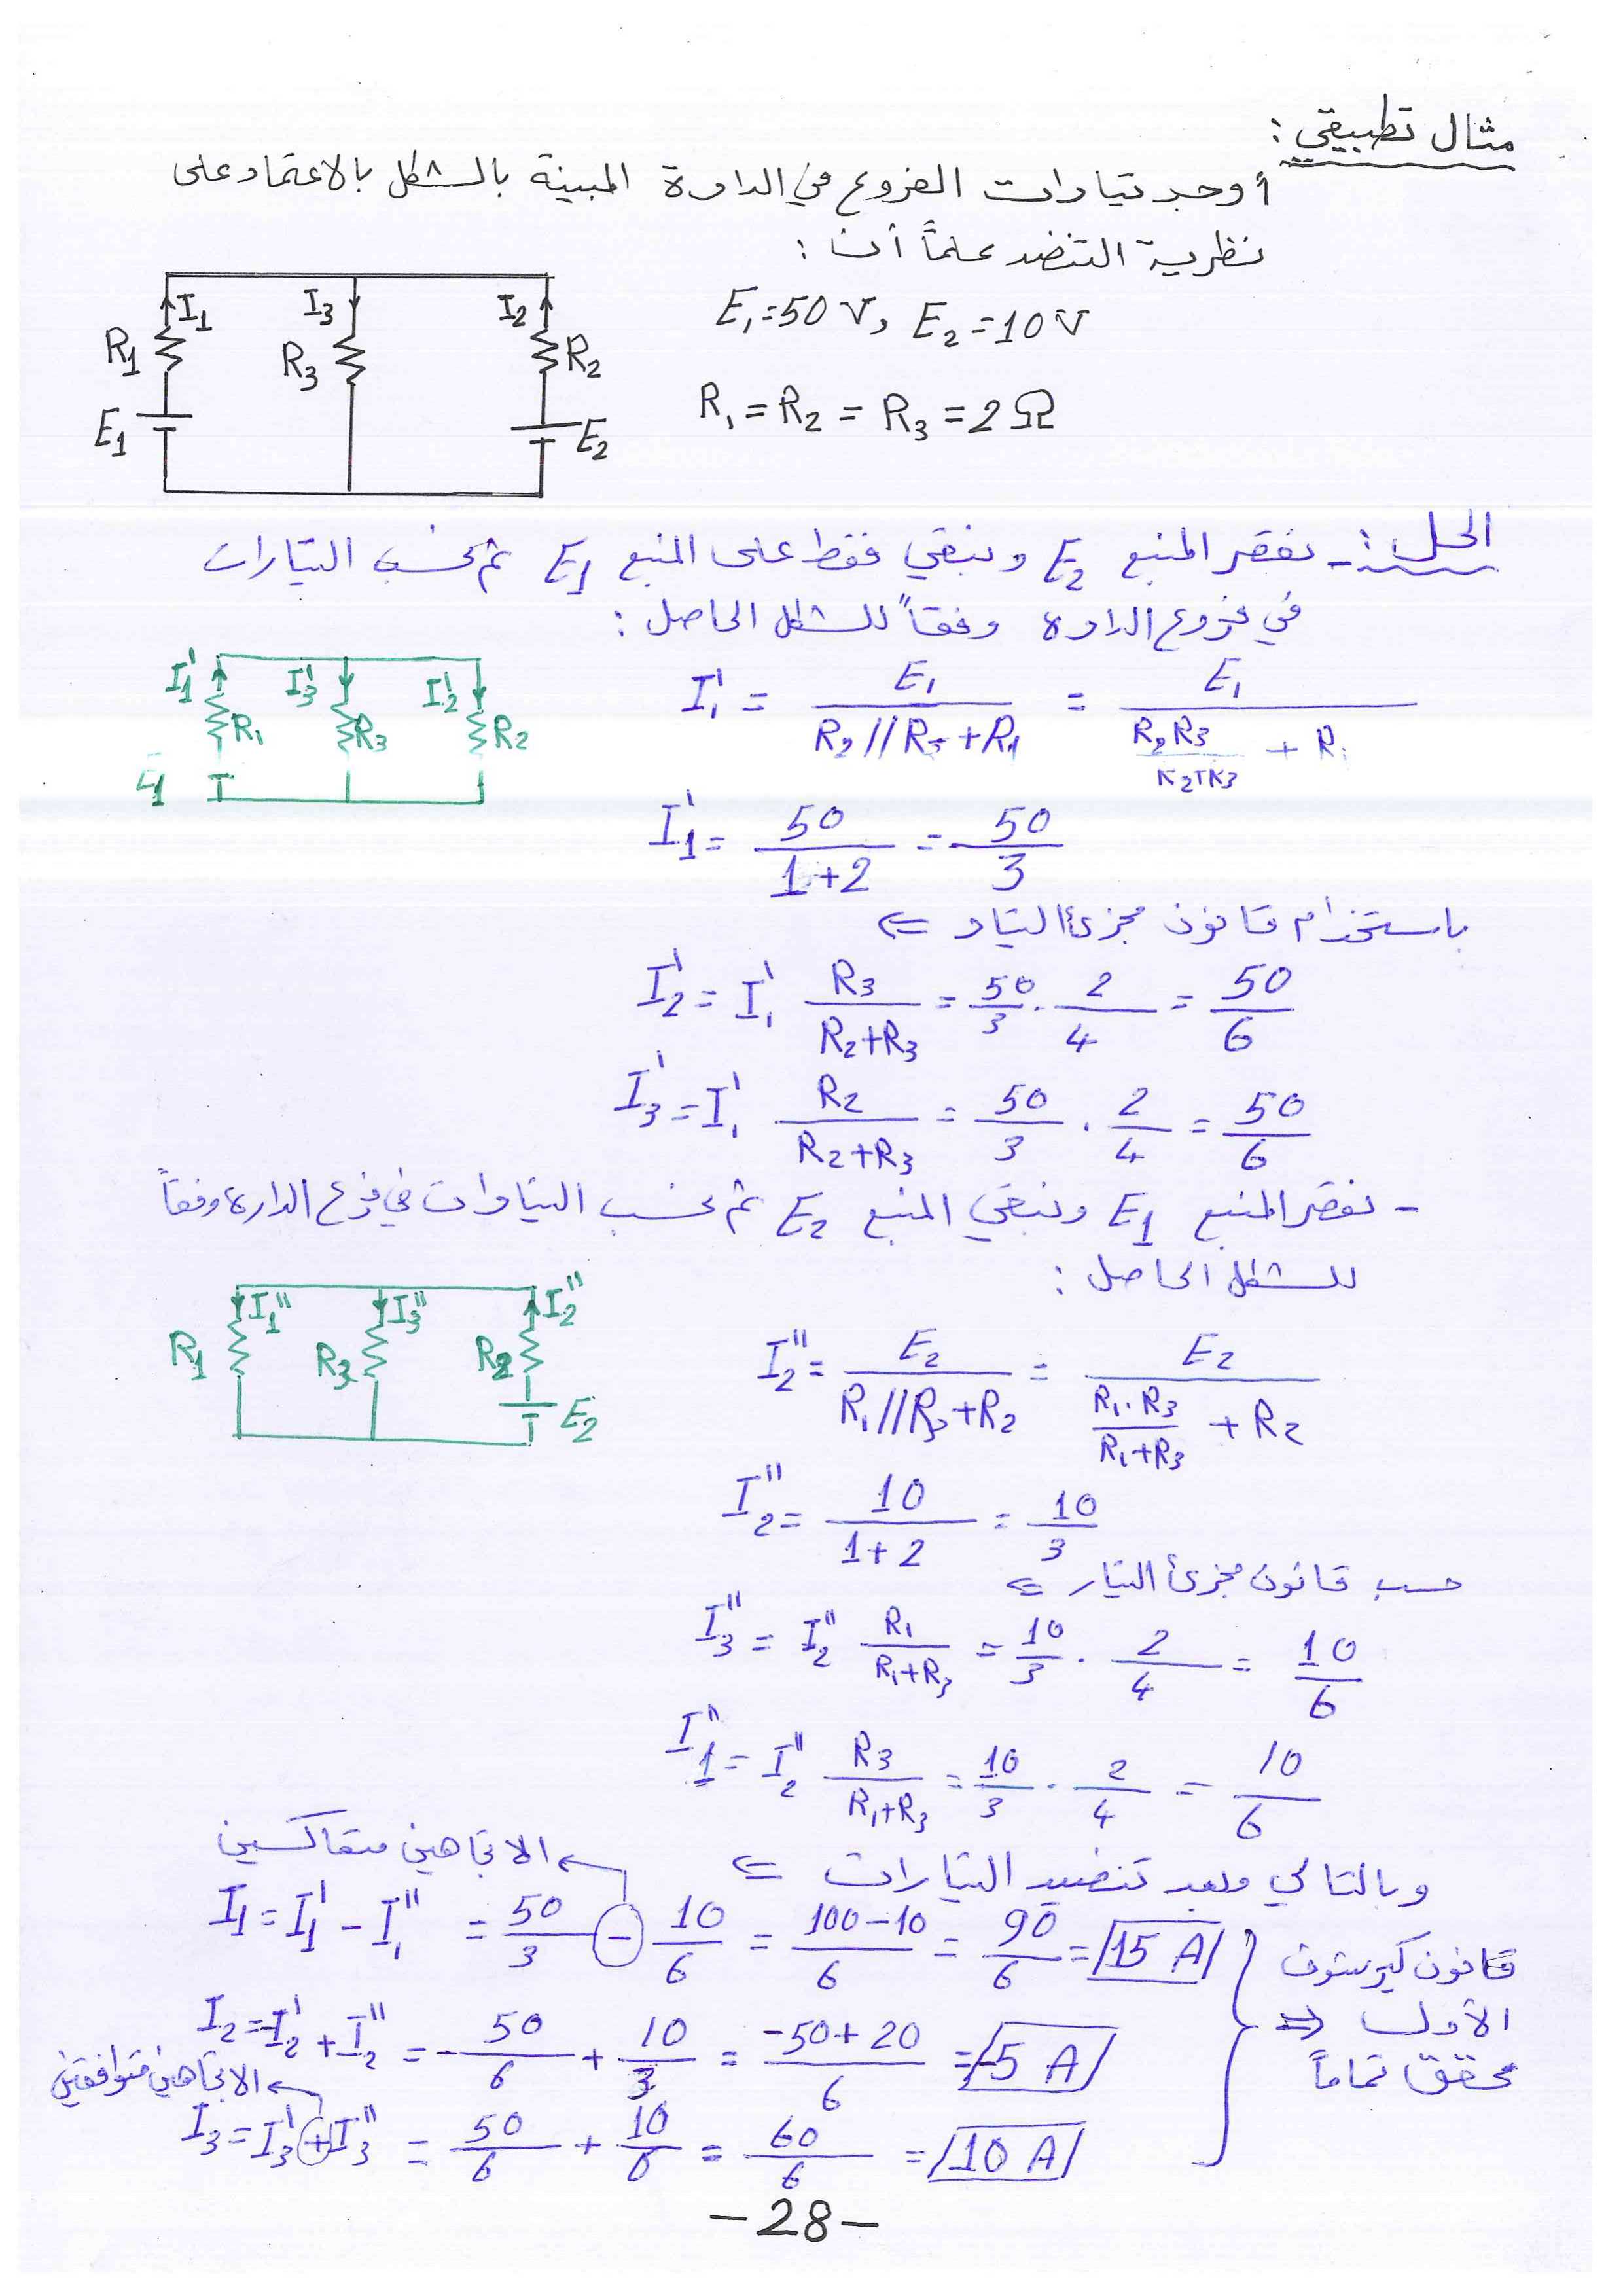 مثال تطبيقي :
أوجد تيارات الفروع في الدارة المبينة بالشكل بالاعتماد على
نظرية التنضد علماً أن :
E₁=50 V, E₂=10 V
R₁ = R₂ = R₃ = 2 Ω
I₁ I₃ I₂
R₁ R₃ R₂
E₁ E₂
الحل : - نقصر المنبع E₂ ونبقي فقط على المنبع E₁ ثم نحسب التيارات
في فروع الدارة وفقاً للشكل الحاصل :
I₁' I₃' I₂'
R₁ R₃ R₂
E₁
I₁' = E₁ / (R₂//R₃ + R₁) = E₁ / (R₂R₃/(R₂+R₃) + R₁)
I₁' = 50/(1+2) = 50/3
باستخدام قانون مجزئ التيار ⇐
I₂' = I₁' R₃/(R₂+R₃) = 50/3 . 2/4 = 50/6
I₃' = I₁' R₂/(R₂+R₃) = 50/3 . 2/4 = 50/6
- نقصر المنبع E₁ ونبقي المنبع E₂ ثم نحسب التيارات في فرع الدارة وفقاً
للشكل الحاصل :
I₁'' I₃'' I₂''
R₁ R₃ R₂
E₂
I₂'' = E₂ / (R₁//R₃ + R₂) = E₂ / (R₁.R₃/(R₁+R₃) + R₂)
I₂'' = 10/(1+2) = 10/3
حسب قانون مجزئ التيار ⇐
I₃'' = I₂'' R₁/(R₁+R₃) = 10/3 . 2/4 = 10/6
I₁'' = I₂'' R₃/(R₁+R₃) = 10/3 . 2/4 = 10/6
وبالتالي وبعد تنضيد التيارات ⇐
الاتجاهين متعاكسين
I₁ = I₁' - I₁'' = 50/3 - 10/6 = (100-10)/6 = 90/6 = 15 A
I₂ = -I₂' + I₂'' = -50/6 + 10/3 = (-50+20)/6 = -5 A
الاتجاهين متوافقين
I₃ = I₃' + I₃'' = 50/6 + 10/6 = 60/6 = 10 A
قانون كيرشوف
الأول ⇒
محقق تماماً
-28-